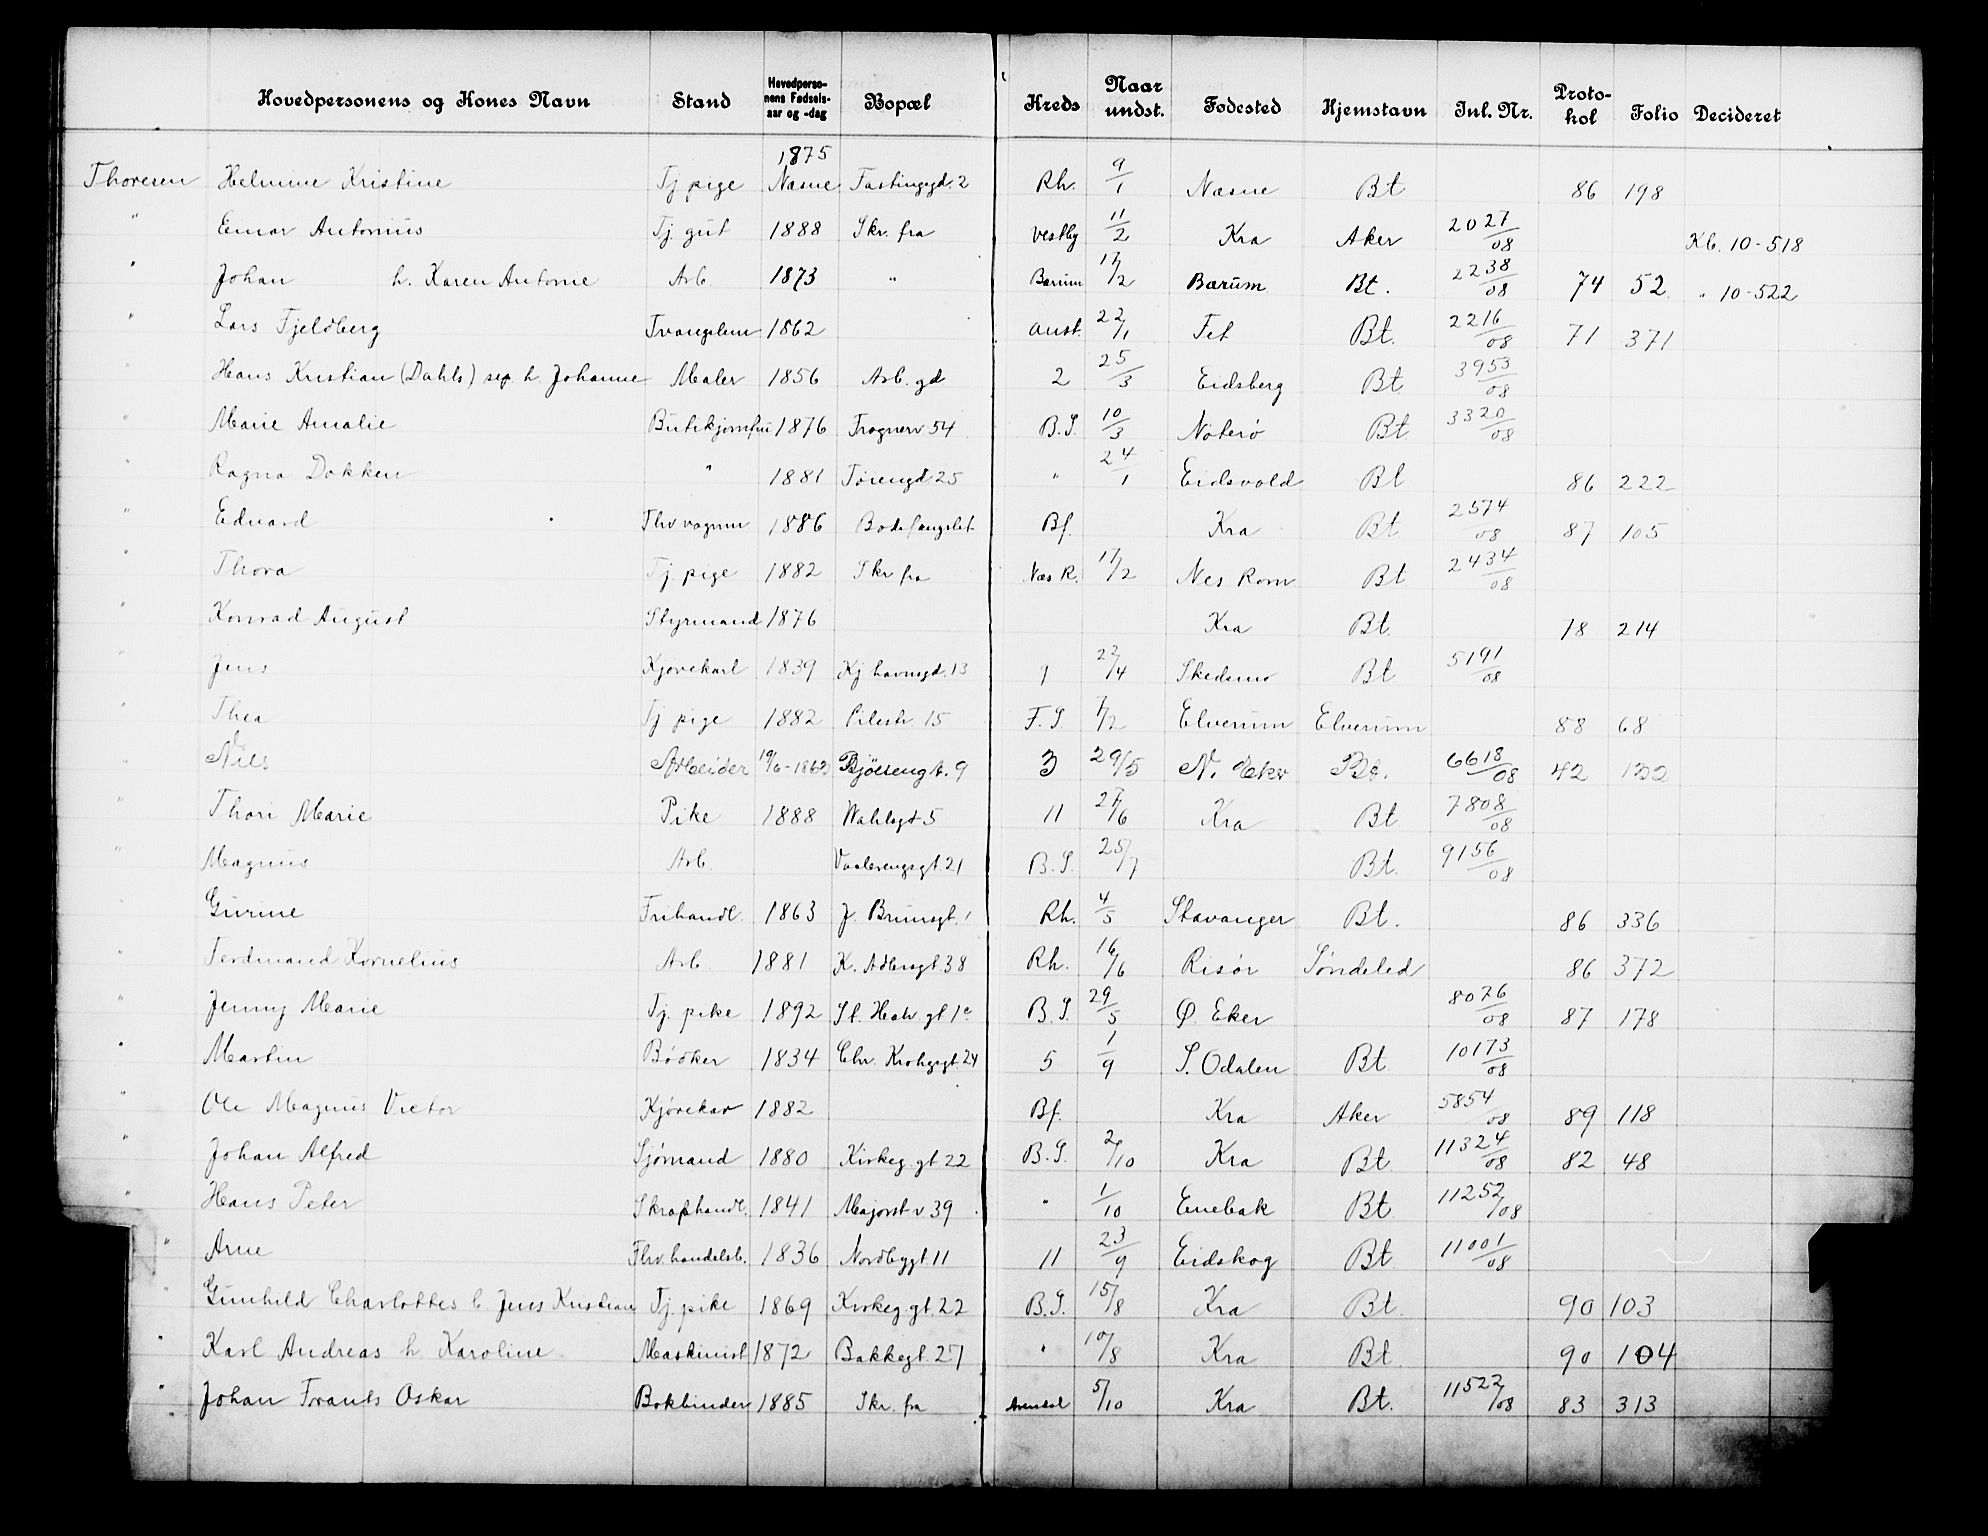 Hovedpersonens og Kones Navn Stand Hovedperso-nens Fødsels-aar og -dag Bopæl Kreds Naar undst. Fødested Hjemstavn Inl. Nr. Proto-kol Folio Decideret
Thoresen Helmine Kristine Tj pige 1875 Næsne Tostingsgd. 2 Rh. 9/1 Næsne Bt 86 198
" Einar Antonius Tj. gut 1888 Skr. fra Vestby 11/2 Kra Aker 2027/08 Kb. 10-518
" Johan h. Karen Antonie Arb. 1873 " Bærum 17/2 Bærum Bt. 2238/08 74 52 " 10-522
" Lars Fjeldberg Tvangslem 1862 anst. 22/1 Fet Bt. 2216/08 71 371
Hans Kristian (Dahls) sep. h. Johanne Maler 1856 Arb. gd 2 25/3 Eidsberg Bt. 3953/08
" Marie Amalie Butikjomfru 1876 Frognerv 54 B.S. 10/3 Nøterø Bt 3320/08
" Ragna Dokken " 1881 Tøiengd 25 " 24/1 Eidsvold Bt 86 222
" Edvard Fhv vognm 1886 Bodsfængslet Bf. Kra Bt 2574/08 87 105
" Thora Tj. pige 1882 Skr fra Næs R. 17/2 Nes Rom. Bt 2434/08
" Konrad August Styrmand 1876 Kra Bt. 78 214
" Jens Kjørekarl 1839 Kj havnsgd. 13 9 22/4 Skedsmo Bt 5191/08
" Thea Tj pige 1882 Pilestr. 15 F.S 7/2 Elverum Elverum 88 68
" Nils Arbeider 19/6-1863 Bjølsengt. 9 3 29/5 N. Eker Bt. 6618/08 42 130
" Thori Marie Pike 1888 Wahlsgt 5 11 27/6 Kra Bt 7808/08
" Magnus Arb. Vaalerengsgt. 21 B.S. 25/7 Bt. 9156/08
" Gurine Frihandl. 1863 J. Brunsgt. 1 Rh. 4/5 Stavanger Bt. 86 336
" Ferdinand Kornelius Arb 1881 K. Adlersgt. 38 Rh. 16/6 Risør Søndeled 86 372
" Jenny Marie Tj. pike 1892 St. Halv. gt 1c B.S. 29/5 Ø. Eker 8076/08 87 178
" Martin Bødker 1834 Chr. Krohgsgt. 24 5 1/9 S. Odalen Bt. 10173/08
" Ole Magnus Victor Kjørekar 1882 Bf. Kra Aker 5854/08 89 118
" Johan Alfred Sjømand 1880 Kirkeg. gt 22 B.S. 2/10 Kra Bt 11324/08 82 48
" Hans Peter Skraphandl. 1841 Majorst v 39 " 1/10 Enebak Bt 11252/08
" Arne Fhv. handelsb. 1836 Nordbygt. 11 11 23/9 Eidskog Bt 11001/08
" Gunhild Charlottes b Jens Kristian Tj. pike 1869 Kirkeg gt. 22 B.S. 15/8 Kra Bt. 90 103
" Karl Andreas h. Karoline Maskinist 1872 Bakkegt. 27 " 10/8 Kra Bt 90 104
" Johan Frants Oskar Bokbinder 1885 Skr. fra Arendal 5/10 Kra Bt. 11522/08 83 313